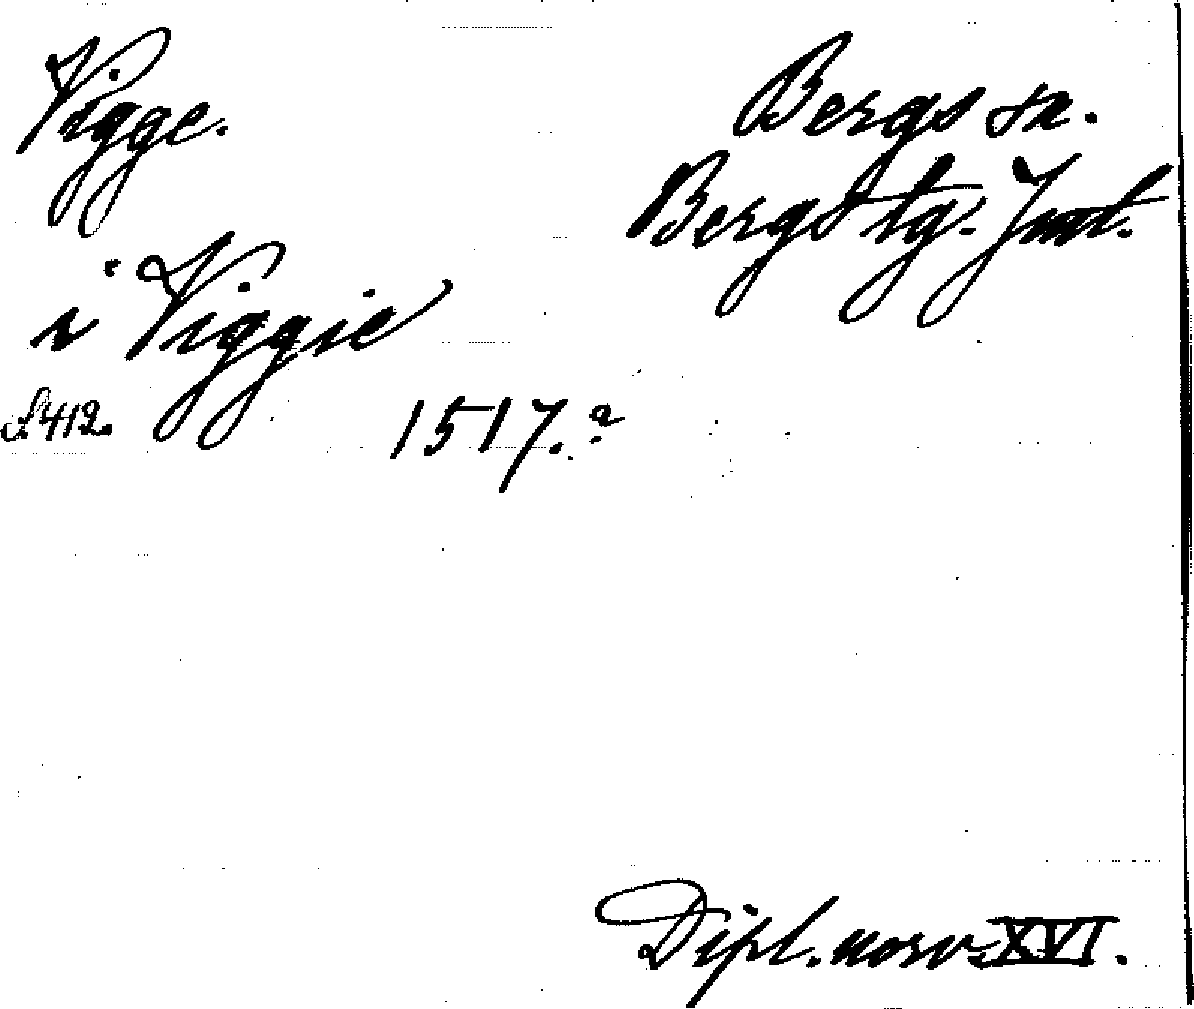 Vigge.
Bergs sn.
Bergs tg. Jmt.
i Viggie
S. 412.
1517. a
Dipl. norv. XVI.